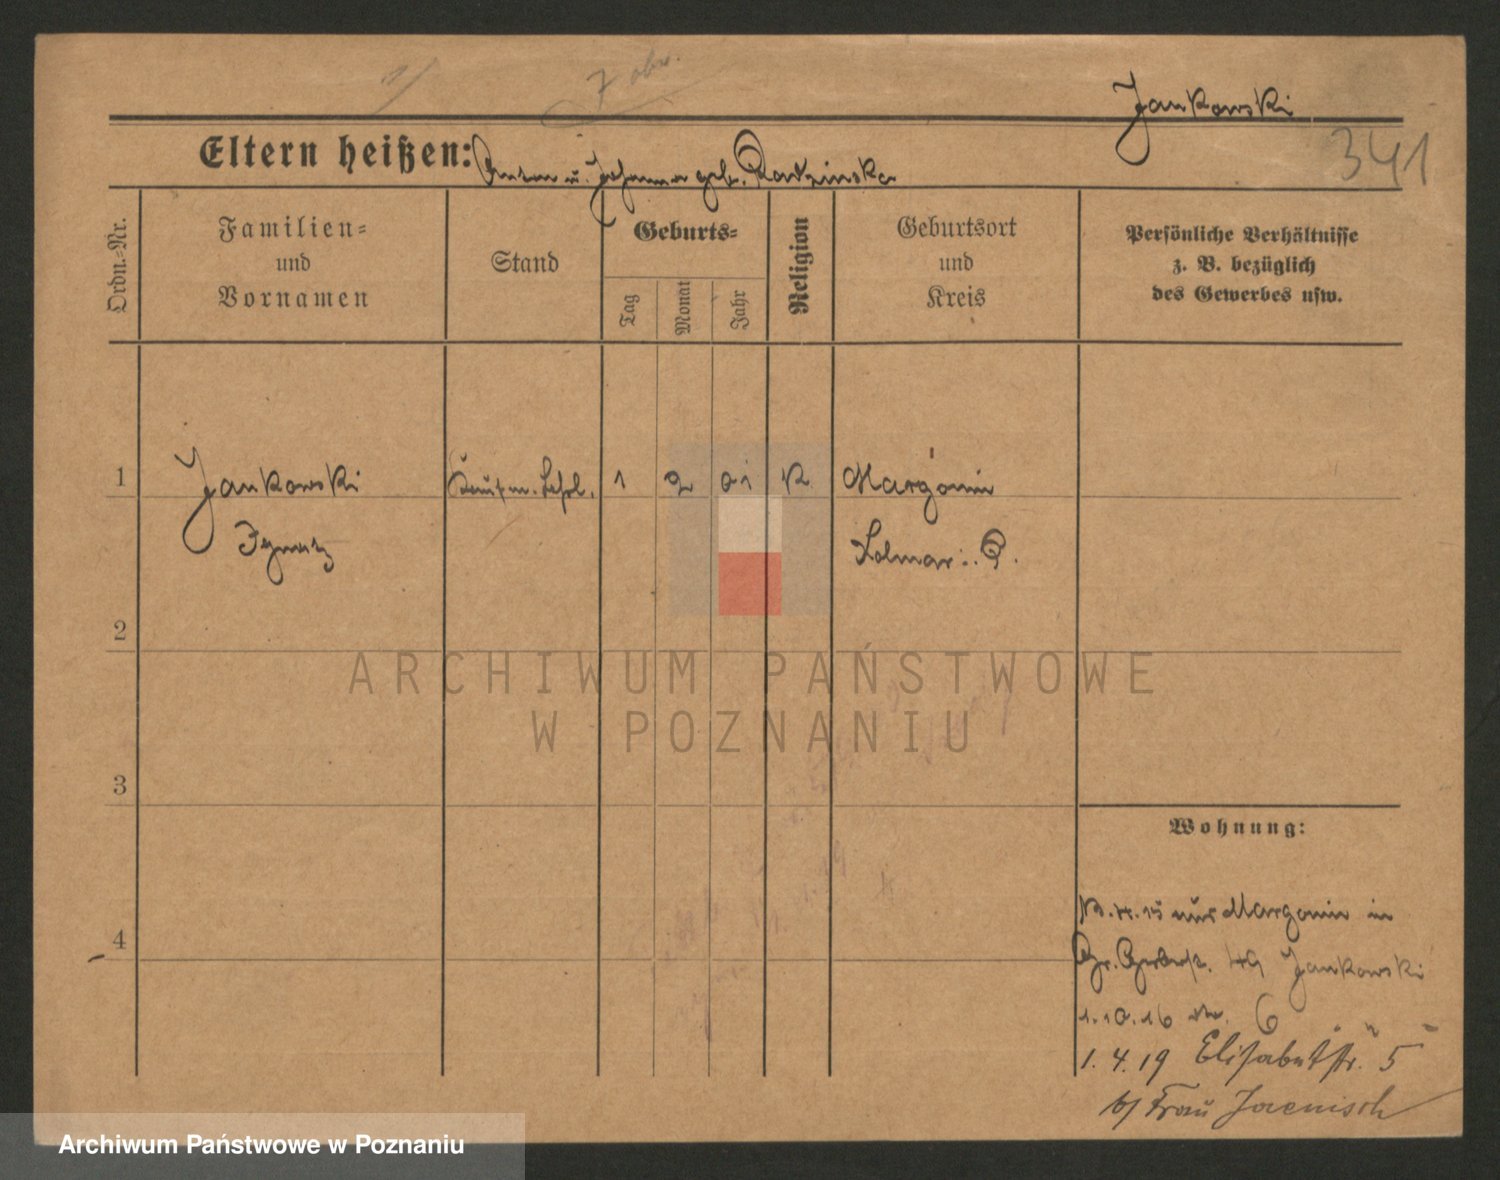 7 abw.
Jankowski
341
Eltern heißen: Anton u. Johanna geb. Radzinska
Ordn.=Nr.
Familien=
und
Vornamen
Stand
Geburts=
Tag
Monat
Jahr
Religion
Geburtsort
und
Kreis
Persönliche Verhältnisse
z. B. bezüglich
des Gewerbes usw.
1
Jankowski
Kaufm. Lehrl.
1
2
01
K
Margonin
Ignatz
Kolmar i. P.
2
ARCHIWUM PAŃSTWOWE
W POZNANIU
3
Wohnung:
4
.4.15 aus Margonin in
Gr. Gerberst. 49 Jankowski
1.10.16 6
1.4.19 Elisabetstr. 5
b/ Frau Jaenisch
Archiwum Państwowe w Poznaniu